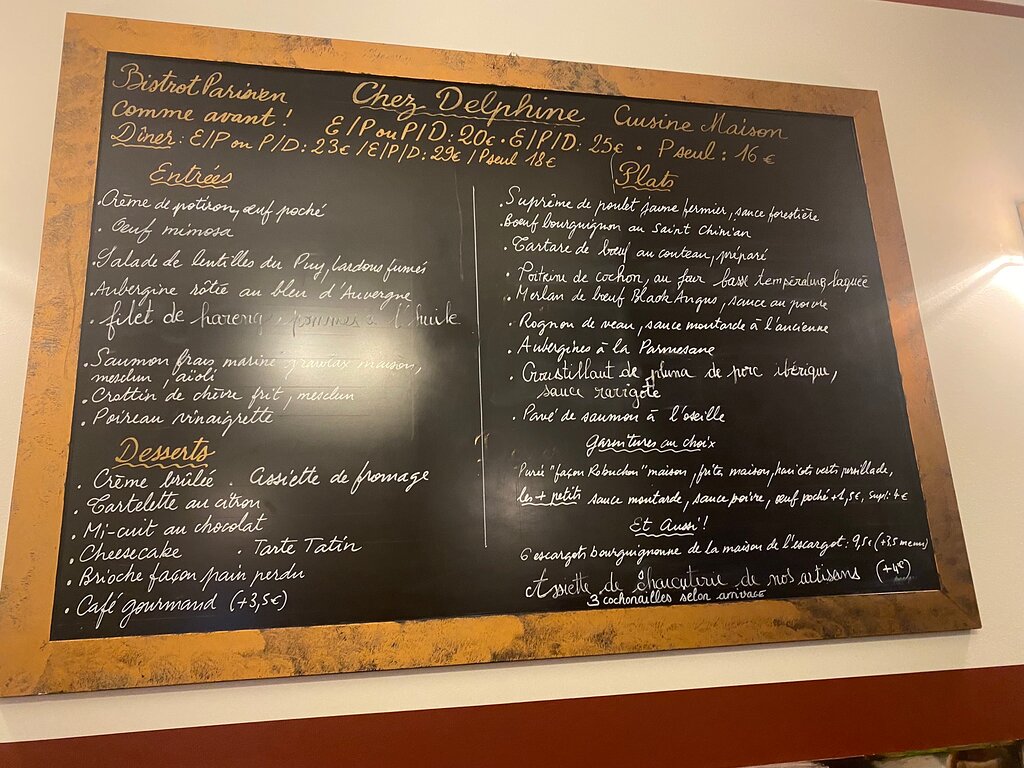 Bistrot Parisien
comme avant !
Chez Delphine
Cuisine Maison
E/P ou P/D : 20€ • E/P/D : 25€ • P seul : 16€
Dîner : E/P ou P/D : 23€ / E/P/D : 29€ / P seul 18€
Entrées
. Crème de potiron, œuf poché
. Œuf mimosa
. Salade de lentilles du Puy, lardons fumés
. Aubergine rôtie au bleu d'Auvergne
. filet de hareng pommes à l'huile
. Saumon frais mariné gravlax maison,
mesclun, aïoli
. Crottin de chèvre frit, mesclun
. Poireau vinaigrette
Desserts
. Crème brûlée . Assiette de fromage
. Tartelette au citron
. Mi-cuit au chocolat
. Cheesecake . Tarte Tatin
. Brioche façon pain perdu
. Café gourmand (+3,5€)
Plats
. Suprême de poulet jaune fermier, sauce forestière
. Bœuf bourguignon au Saint Chinian
. Tartare de bœuf au couteau, préparé
. Poitrine de cochon, au four basse température, laquée
. Merlan de bœuf Black Angus, sauce au poivre
. Rognon de veau, sauce moutarde à l'ancienne
. Aubergines à la Parmesane
. Croustillant de pluma de porc ibérique,
sauce ravigote
. Pavé de saumon à l'oseille
Garnitures au choix
Purée "façon Robuchon" maison, frites maison, haricots verts persillade,
les + petits sauce moutarde, sauce poivre, œuf poché +1,5€, Suppl : 4€
Et Aussi !
6 escargots bourguignonne de la maison de l'escargot : 9,5€ (+3,5 menu)
Assiette de charcuterie de nos artisans (+4€)
3 cochonailles selon arrivage